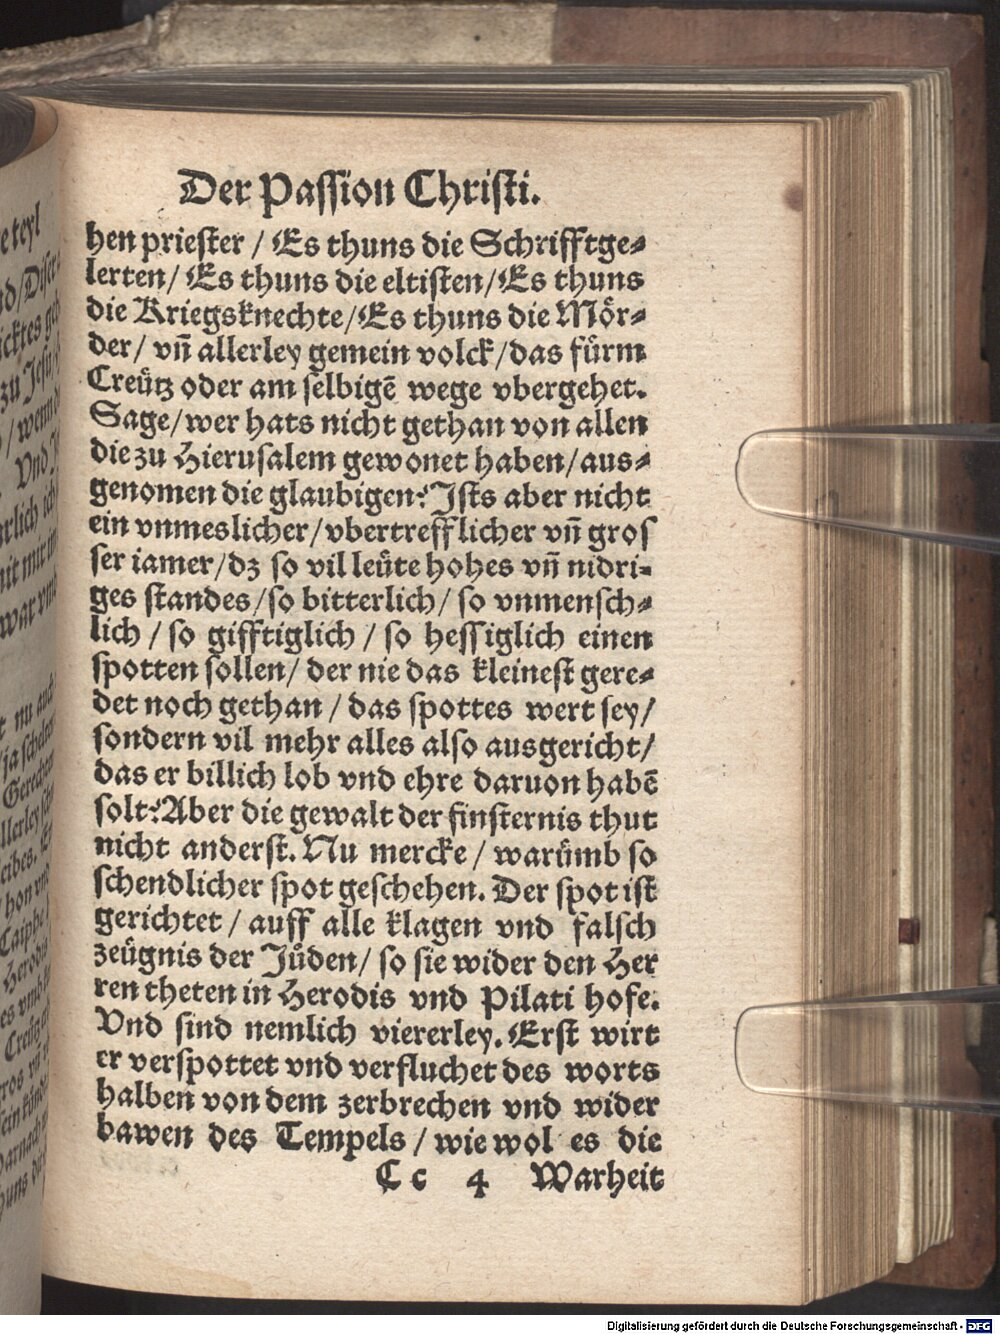 Der Passion Christi.
hen priester / Es thuns die Schrifftge⸗
lerten/ Es thuns die eltisten/Es thuns
die Kriegsknechte/Es thuns die Mör⸗
der/ vñ allerley gemein volck/das fürm
Creütz oder am selbigẽ wege vbergehet.
Sage/wer hats nicht gethan von allen
die zu Hierusalem gewonet haben/aus⸗
genomen die glaubigen? Ists aber nicht
ein vnmeslicher/vbertrefflicher vñ gros
ser iamer/dz so vil leüte hohes vñ nidri⸗
ges standes/so bitterlich/ so vnmensch⸗
lich / so gifftiglich / so hessiglich einen
spotten sollen/ der nie das kleinest gere⸗
det noch gethan / das spottes wert sey/
sondern vil mehr alles also ausgericht/
das er billich lob vnd ehre daruon habẽ
solt? Aber die gewalt der finsternis thut
nicht anderst. Nu mercke / warümb so
schendlicher spot geschehen. Der spot ist
gerichtet / auff alle klagen vnd falsch
zeügnis der Jüden/ so sie wider den Her
ren theten in Herodis vnd Pilati hofe.
Vnd sind nemlich viererley. Erst wirt
er verspottet vnd verfluchet des worts
halben von dem zerbrechen vnd wider
bawen des Tempels / wie wol es die
Cc 4 Warheit
Digitalisierung gefördert durch die Deutsche Forschungsgemeinschaft - DFG